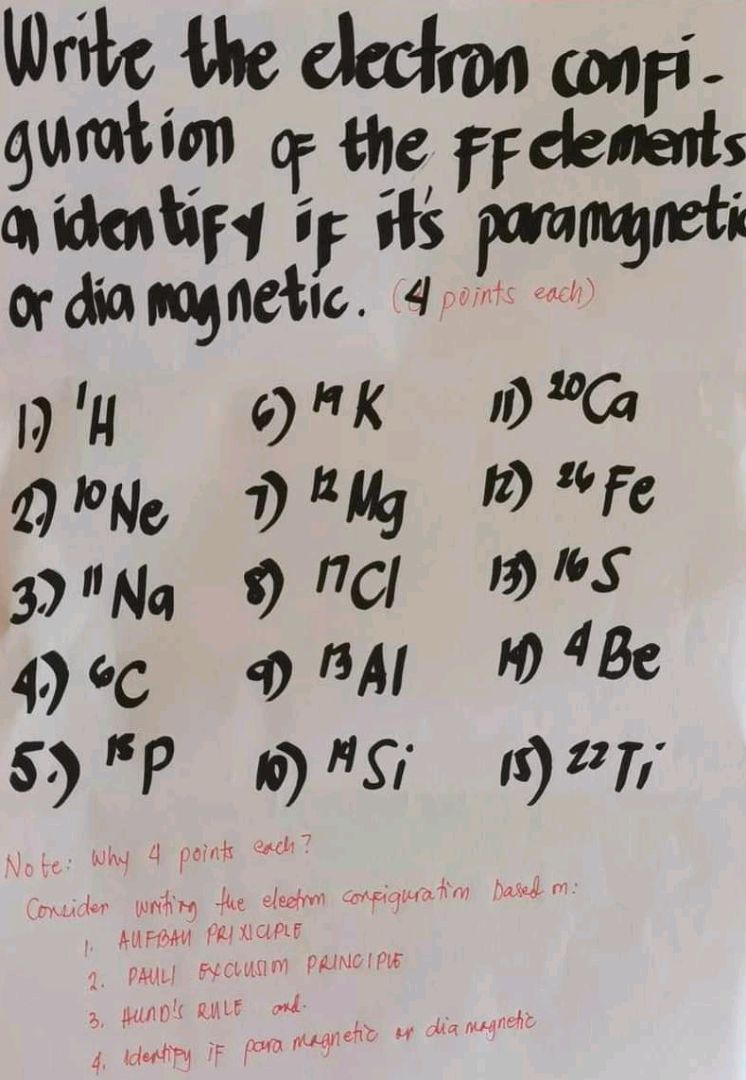 Write the electron confi-
guration of the FF elements
a identify if it's paramagnetic
or diamagnetic. (4 points each)
1.) ¹H 6) ¹⁹K 11) ²⁰Ca
2.) ¹⁰Ne 7) ¹²Mg 12) ²⁶Fe
3.) ¹¹Na 8) ¹⁷Cl 13) ¹⁶S
4.) ⁶C 9) ¹³Al 14) ⁴Be
5.) ¹⁵P 10) ¹⁴Si 15) ²²Ti
Note: Why 4 points each?
Consider writing the electron configuration based on:
1. AUFBAU PRINCIPLE
2. PAULI EXCLUSION PRINCIPLE
3. HUND'S RULE and.
4. Identify if para magnetic or dia magnetic